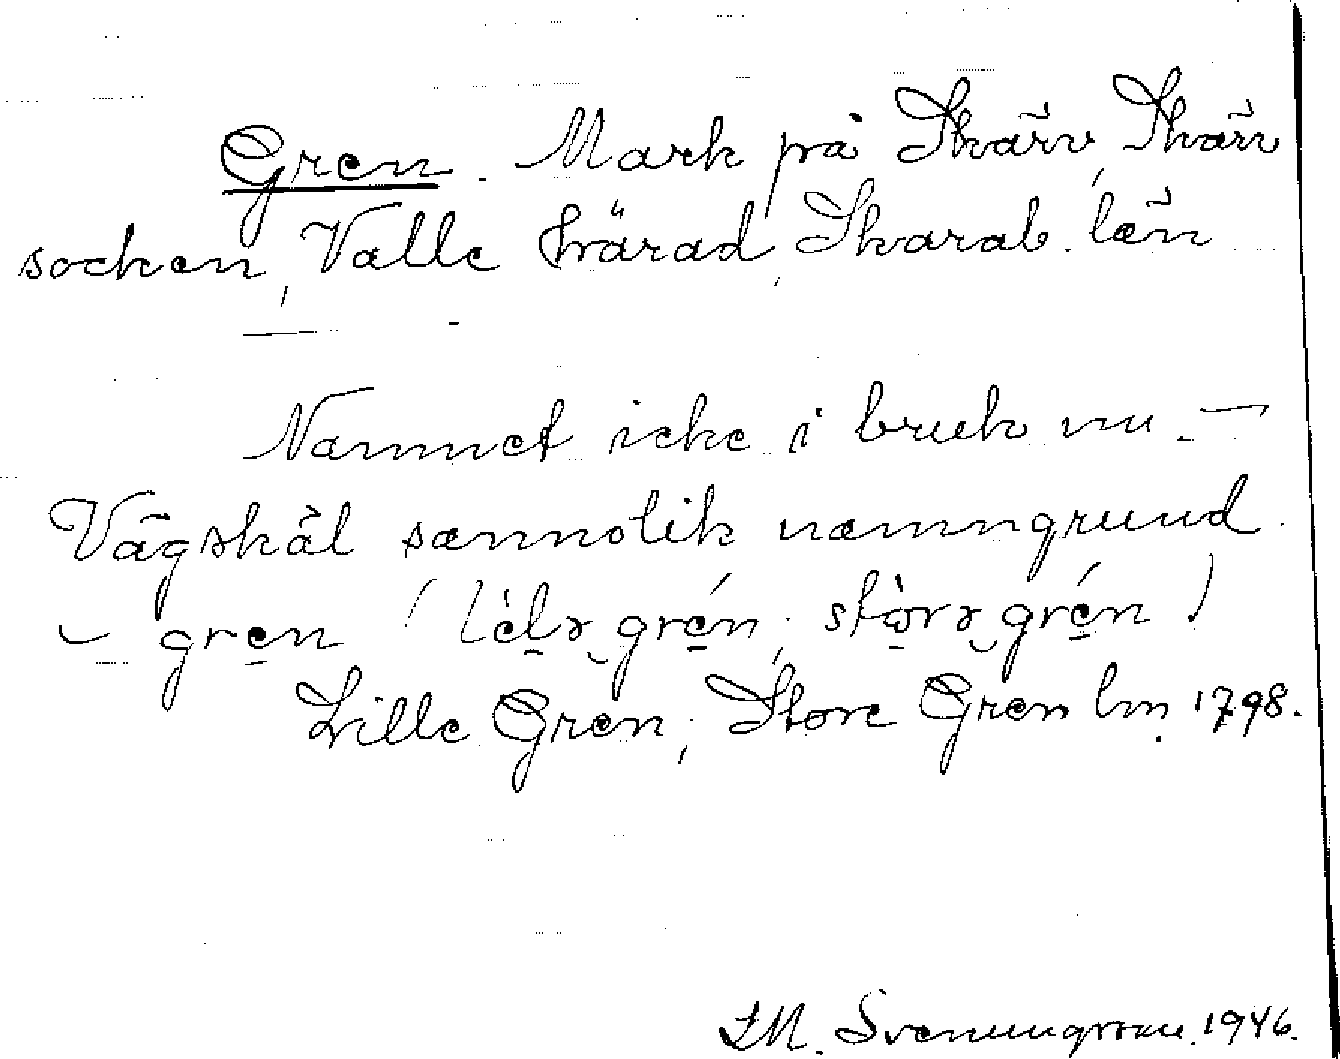 Gren. Mark på Skärv, Skärv
socken, Valle härad, Skarab. län
Namnet icke i bruk nu. –
Vägskäl sannolik namngrund
– gren ( le̱lə grén, sto̱rə grén )
Lille Gren; Store Gren lm. 1798.
1946.